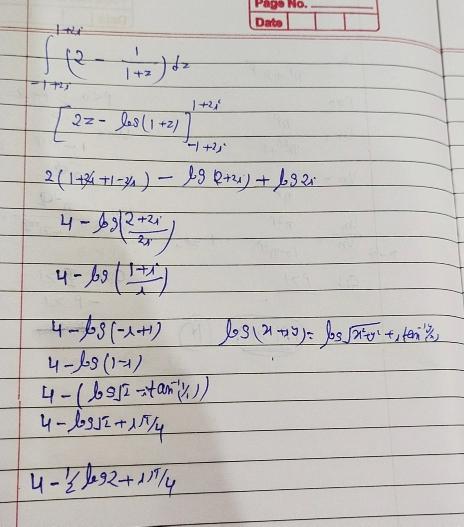 Page No.
Date
∫_{-1+2i}^{1+2i} (2 - 1/(1+z)) dz
[2z - log(1+z)]_{-1+2i}^{1+2i}
2(1+2i+1-2i) - log(2+2i) + log 2i
4 - log((2+2i)/2i)
4 - log((1+i)/i)
4 - log(-i+1) log(x+iy) = log√(x²+y²) + i tan⁻¹ y/x
4 - log(1-i)
4 - (log√2 - i tan⁻¹(1/1))
4 - log√2 + iπ/4
4 - ½ log 2 + iπ/4